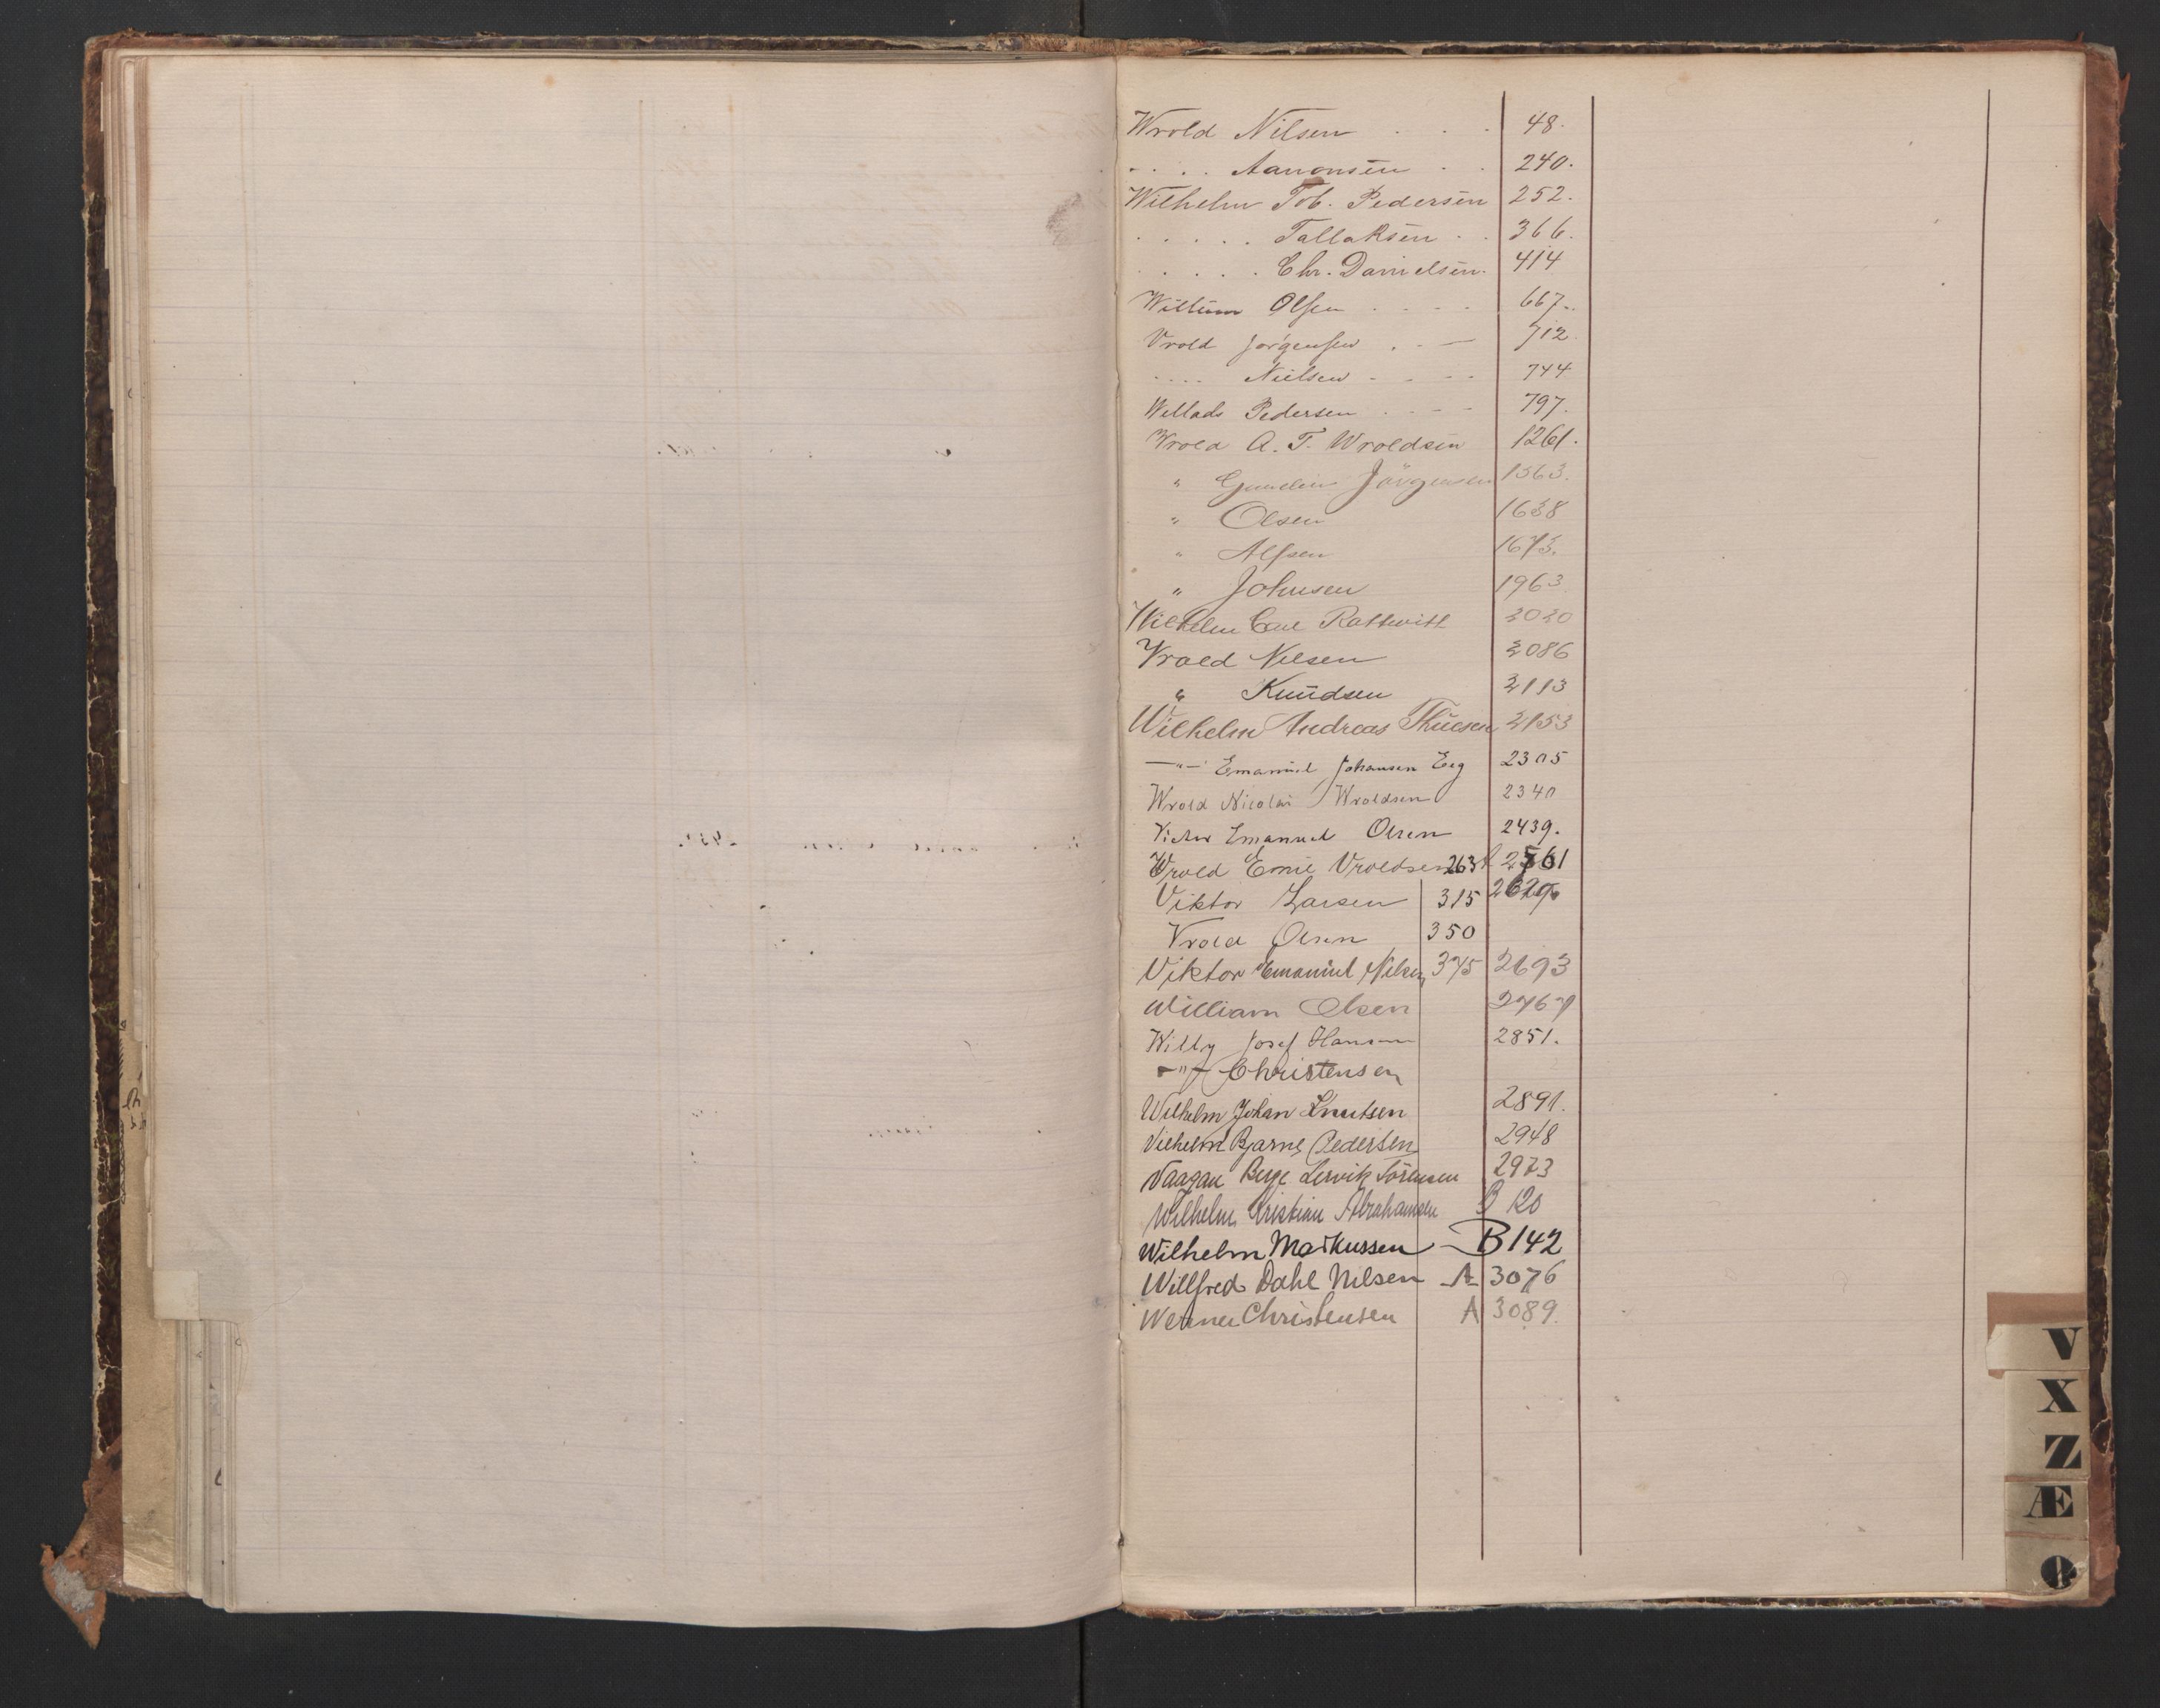 Wrold Nilsen . . . 48.
. . . . Aanonsen . . 240.
Wilhelm Tob. Pedersen 252.
. . . . . Tallaksen . . 366.
. . . . . Chr. Danielsen. 414
Willum Olsen . . . . 667.
Vrold Jørgensen . . — 712
. . . . Nielsen . . . . 744
Willads Pedersen . . . . 797.
Wrold A. T. Wroldsen 1261.
" Jörgensen 1563.
" Olsen 1638
" Alfsen 1673.
" Johnsen 1963
Wilhelm Carl 2020
Vrold Nilsen 2086
" Knudsen 2113
Wilhelm Andreas Thuesen 2153
—"— Emanuel Johansen Eeg 2305
Wrold Nicolai Wroldsen 2340
Victor Emanuel Olsen 2439.
Wrold Emil Vroldsen 263 2561
Viktor Larsen 315
Vrold Olsen 350
Viktor Emanuel Nilsen 375 2693
William Olsen 2767
Willy Josef Hansen 2851.
—"— Christensen
Wilhelm Johan Knutsen 2891.
Vilhelm Bjarne Pedersen 2948
Vaagan Berge Lervik Sørensen 2973
Wilhelm Kristian Abrahamsen B 120
Wilhelm Markussen — B 142
Willfred Dahl Nilsen A 3076
Werner Christensen A 3089.
V
X
Z
Æ
Ø